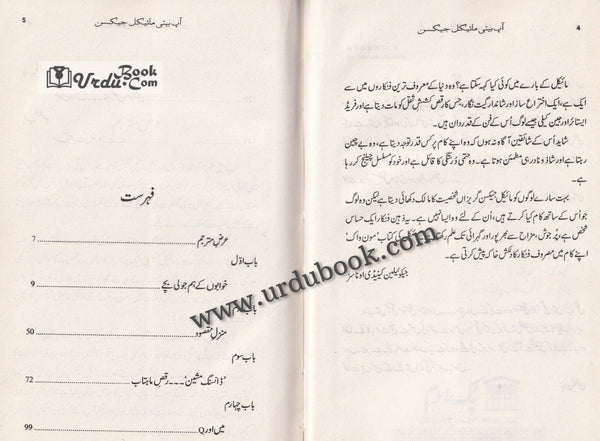 آپ بیتی مائیکل جیکسن
4
مائیکل کے بارے میں کوئی کیا کہہ سکتا ہے؟ وہ دنیا کے معروف ترین فنکاروں میں سے
ایک ہے، ایک اختراع ساز اور شاندار گیت نگار، جس کا رقص کشش ثقل کو مات دیتا ہے اور فریڈ
ایسٹائر اور جین کیلی جیسے لوگ اُس کے فن کے قدردان ہیں۔
شاید اُس کے شائقین آگاہ نہ ہوں کہ وہ اپنے کام پر کس قدر توجہ دیتا ہے، وہ بے چین
رہتا ہے اور شاذ و نادر ہی مطمئن ہوتا ہے۔ وہ حتمی درستگی کا قائل ہے اور خود کو مسلسل چیلنج کر رہا
ہے۔
بہت سارے لوگوں کو مائیکل جیکسن گریزاں شخصیت کا مالک دکھائی دیتا ہے لیکن وہ لوگ
جو اُس کے ساتھ کام کیا کرتے ہیں، اُن کے لئے وہ ایسا نہیں ہے۔ یہ ذہین فنکار ایک حساس
شخص ہے، پُر جوش، مزاح سے بھرپور اور گہرائی تک علم رکھنے والا۔ مائیکل کی کتاب 'مون واک'
اپنے کام میں مصروف فنکار کا دلکش خاکہ پیش کرتی ہے۔
جیکولین کینیڈی اوناسز
آپ بیتی مائیکل جیکسن
5
UrduBook.Com
فہرست
عرض مترجم 7
باب اوّل
خوابوں کے ہم جولی بچے 9
باب
منزلِ مقصود 50
باب سوم
'ڈانسنگ مشین'۔۔۔ رقص ماہتاب 72
باب چہارم
میں اور Q 99
www.urdubook.com